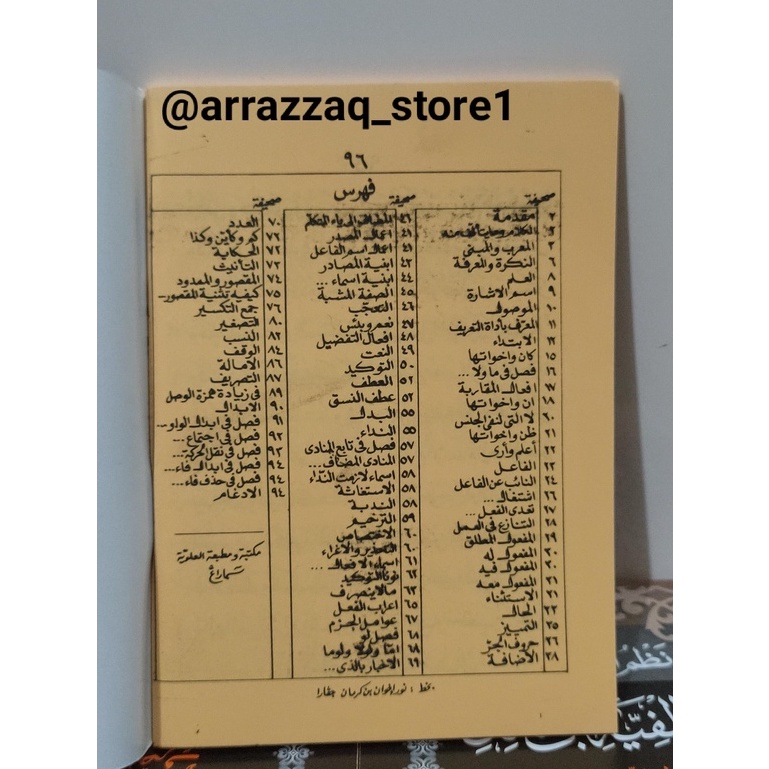 @arrazzaq_store1
٩٦
فهرس
صحيفة
٢ مقدمة
٢ الكلام وما يتألف منه
٣ المعرب والمبنى
٦ النكرة والمعرفة
٨ العلم
٩ اسم الاشارة
١٠ الموصول
١١ المعرف بأداة التعريف
١٢ الابتداء
١٥ كان واخواتها
١٦ فصل فى ما ولا ...
١٧ افعال المقاربة
١٨ ان واخواتها
٢٠ لا التى لنفى الجنس
٢١ ظن واخواتها
٢٢ أعلم وأرى
٢٣ الفاعل
٢٤ النائب عن الفاعل
٢٦ اشتغال ...
٢٧ تعدى الفعل ...
٢٨ التنازع فى العمل
٢٩ المفعول المطلق
٣٠ المفعول له
٣٠ المفعول فيه
٣١ المفعول معه
٣١ الاستثناء
٣٣ الحال
٣٥ التمييز
٣٦ حروف الجر
٣٨ الاضافة
صحيفة
٤١ المضاف الى ياء المتكلم
٤١ اعمال المصدر
٤١ اعمال اسم الفاعل
٤٣ ابنية المصادر
٤٤ ابنية اسماء ...
٤٥ الصفة المشبة
٤٦ التعجب
٤٧ نعم وبئس
٤٨ افعال التفضيل
٤٩ النعت
٥٠ التوكيد
٥٢ العطف
٥٣ عطف النسق
٥٥ البدل
٥٥ النداء
٥٧ فصل فى تابع المنادى
٥٧ المنادى المضاف ...
٥٨ اسماء لازمت النداء
٥٨ الاستغاثة
٥٨ الندبة
٥٩ الترخيم
٦٠ الاختصاص
٦٠ التحذير والاغراء
٦١ اسماء الافعال ...
٦٢ نونا التوكيد
٦٣ مالا ينصرف
٦٥ اعراب الفعل
٦٧ عوامل الجزم
٦٨ فصل لو
٦٨ اما ولولا ولوما
٦٩ الاخبار بالذى ...
صحيفة
٧٠ العدد
٧٢ كم وكأين وكذا
٧٢ الحكاية
٧٣ التأنيث
٧٤ المقصور والممدود
٧٥ كيفية تثنية المقصور ...
٧٦ جمع التكسير
٨٠ التصغير
٨٢ النسب
٨٤ الوقف
٨٦ الامالة
٨٧ التصريف
٨٩ فى زيادة همزة الوصل
٩٠ الابدال
٩١ فصل فى ابدال الواو ...
٩٢ فصل فى اجتماع ...
٩٣ فصل فى نقل الحركة ...
٩٤ فصل فى ابدال فاء ...
٩٤ فصل فى حذف فاء ...
٩٤ الادغام
مكتبة ومطبعة العلوية
سماراغ
بخط : نور إخوان بن كرمان جفارا
نظم